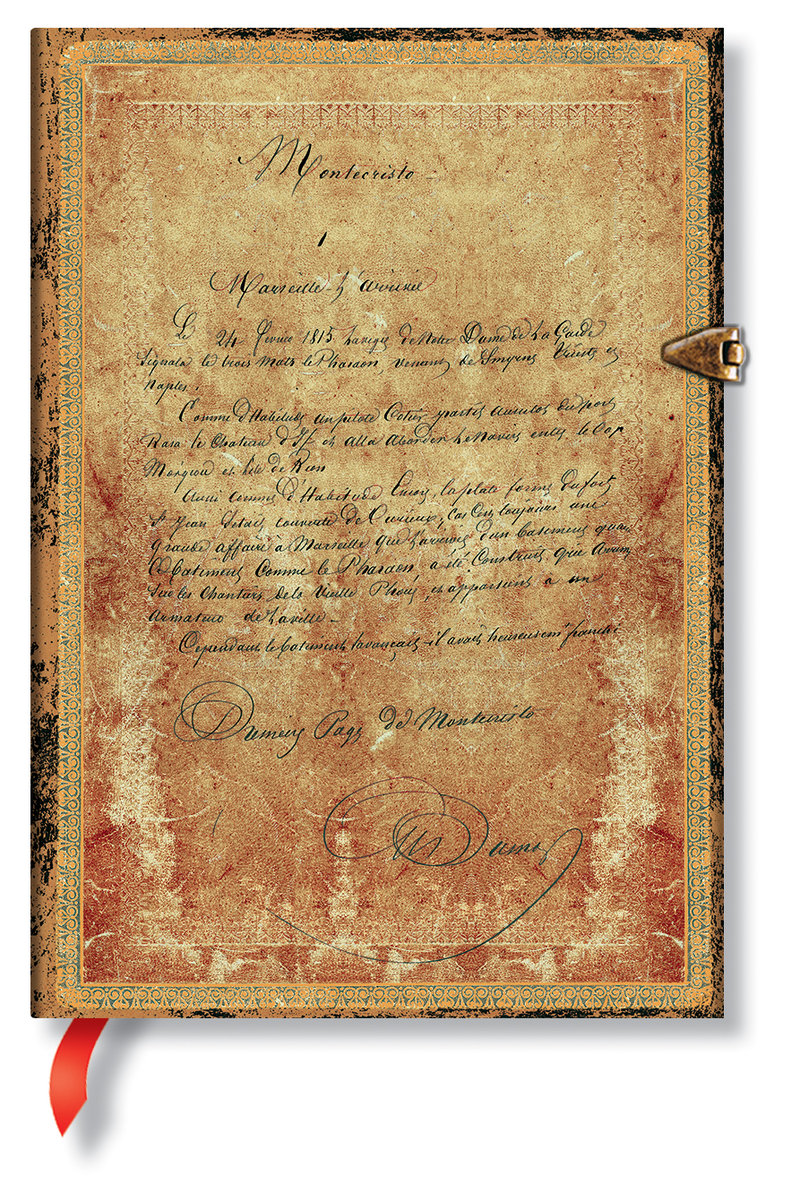 Montecristo –
1
Marseille – L'arrivée
Le 24 fevrier 1815, la vigie de Notre Dame de la Garde
Signala le trois mats le Pharaon, venant de Smyrne Trieste et
Naples.
Comme d'Habitude, un pilote Cotier partit aussitot du port
Rasa le Chateau d'If et alla aborder le Navire entre le Cap
Morgiou et l'ile de Rion
Aussi comme d'Habitude encore, la plate forme du fort
St Jean s'etait couverte de Curieux, Car C'est toujours une
grande affaire à Marseille que l'arrivée d'un batiment quand
Ce batiment Comme le Pharaon a été Construit, grée Arrimé
Sur les Chantiers de la Vieille Phocée, et appartient a un
Armateur de la ville –
Cependant le batiment s'avançait – il avait heureusement franchi
Derniere Page de Montecristo
Alex Dumas